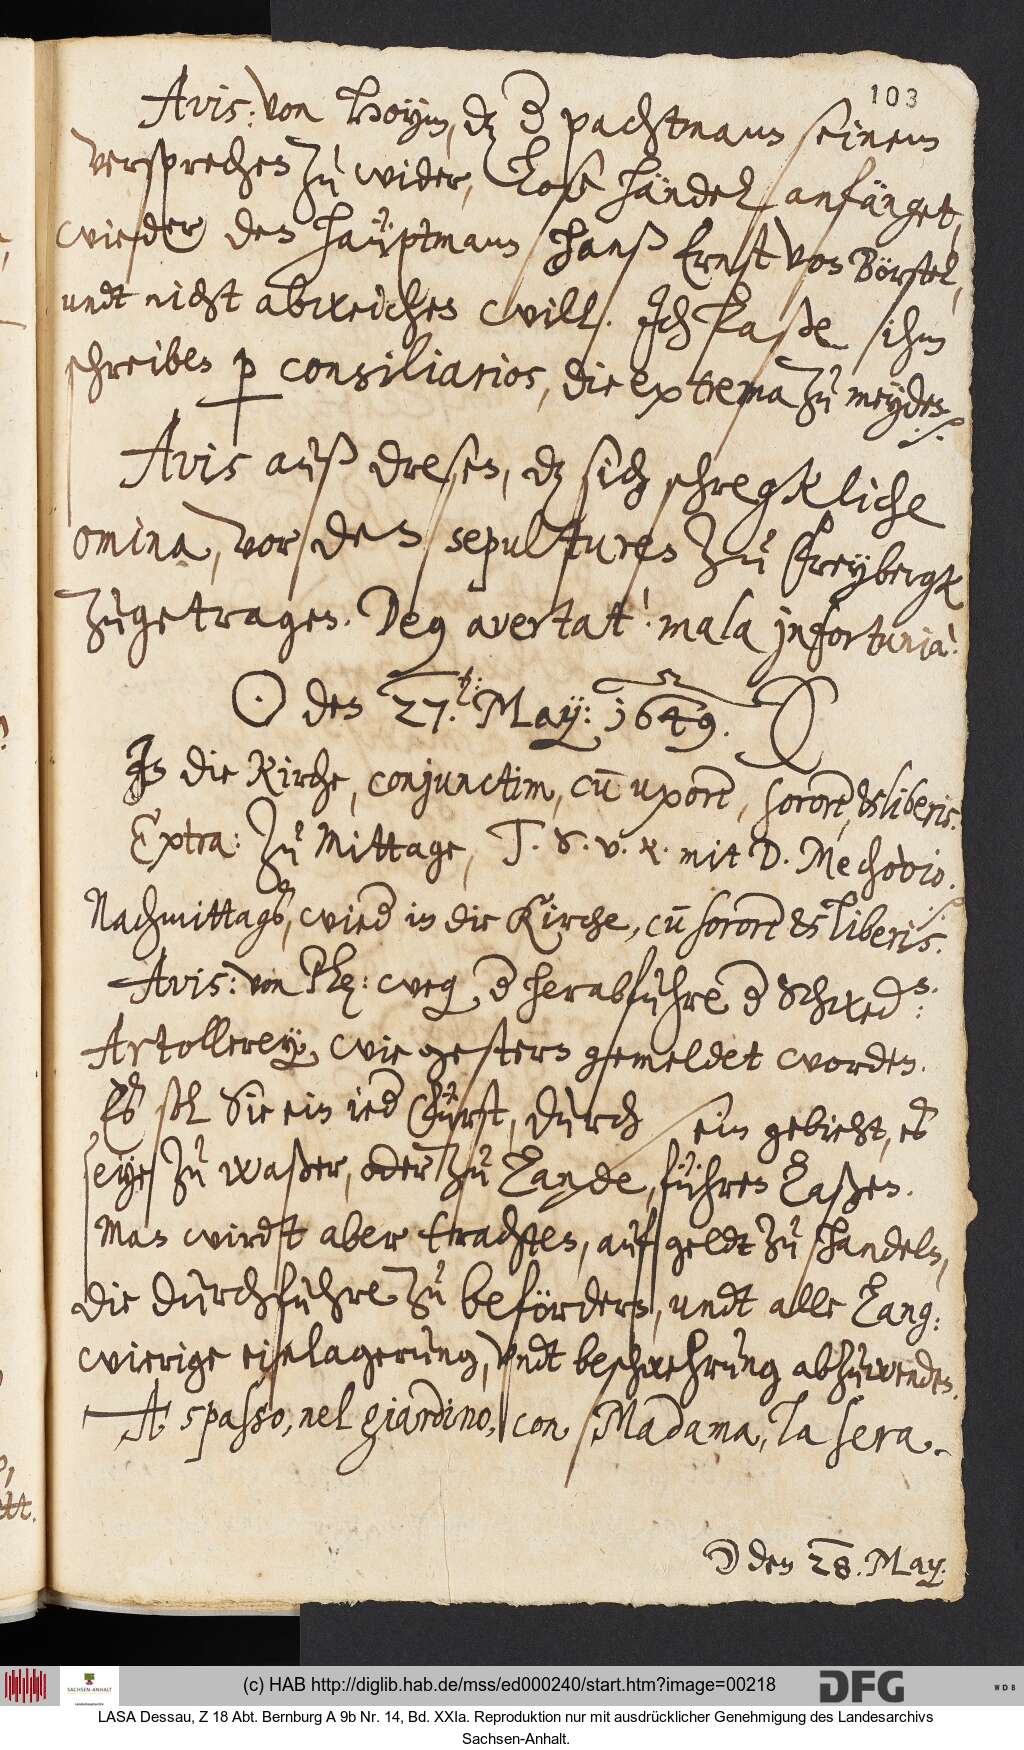 103
Avis: von Hoym, dz d pachtmann seinem
versprechen zu wider, lose händel anfänget,
wieder den haüptmann Hanß Ernst von Börstel,
undt nicht abweichen will. Ich laße ihm
schreiben p consiliarios, die extrema zu meyden ./.
Avis auß Dresen, dz sich schregkliche
omina, vor den sepulturen zu Freybergk
zugetragen. Deg avertat! mala infortunia!
☉ den 27. May: 1649.
In die Kirche, conjunctim, cū uxore, sorore, & liberis.
Extra: zu Mittage, T. S. v. R. mit D. Mechovio.
Nachmittags, wied in die Kirche, cū sorore & liberis. ./.
Avis: von weg d herabführe d Schwed:
Artollerey, wie gestern gemeldet worden.
Es sol Sie ein ied Fürst, durch sein gebieht, es
seye zu waßer, oder zu Lande, führen laßen.
Man wirdt aber trachten, auf geldt zu handeln,
die durchführe zu befördern, undt alle Lang:
wierige einlagerung, undt beschwehrung abzuwenden.
A spasso, nel giardino, con Madama, la sera.
☽ den 28. May.
(c) HAB http://diglib.hab.de/mss/ed000240/start.htm?image=00218
SACHSEN-ANHALT
DFG
WDB
LASA Dessau, Z 18 Abt. Bernburg A 9b Nr. 14, Bd. XXIa. Reproduktion nur mit ausdrücklicher Genehmigung des Landesarchivs
Sachsen-Anhalt.